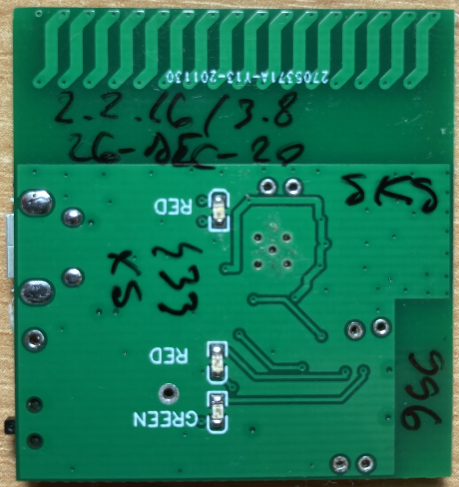 2705371A-Y13-201130
2.2.16/3.8
26-DEC-20
SKS
RED
SX
433
RED
GREEN